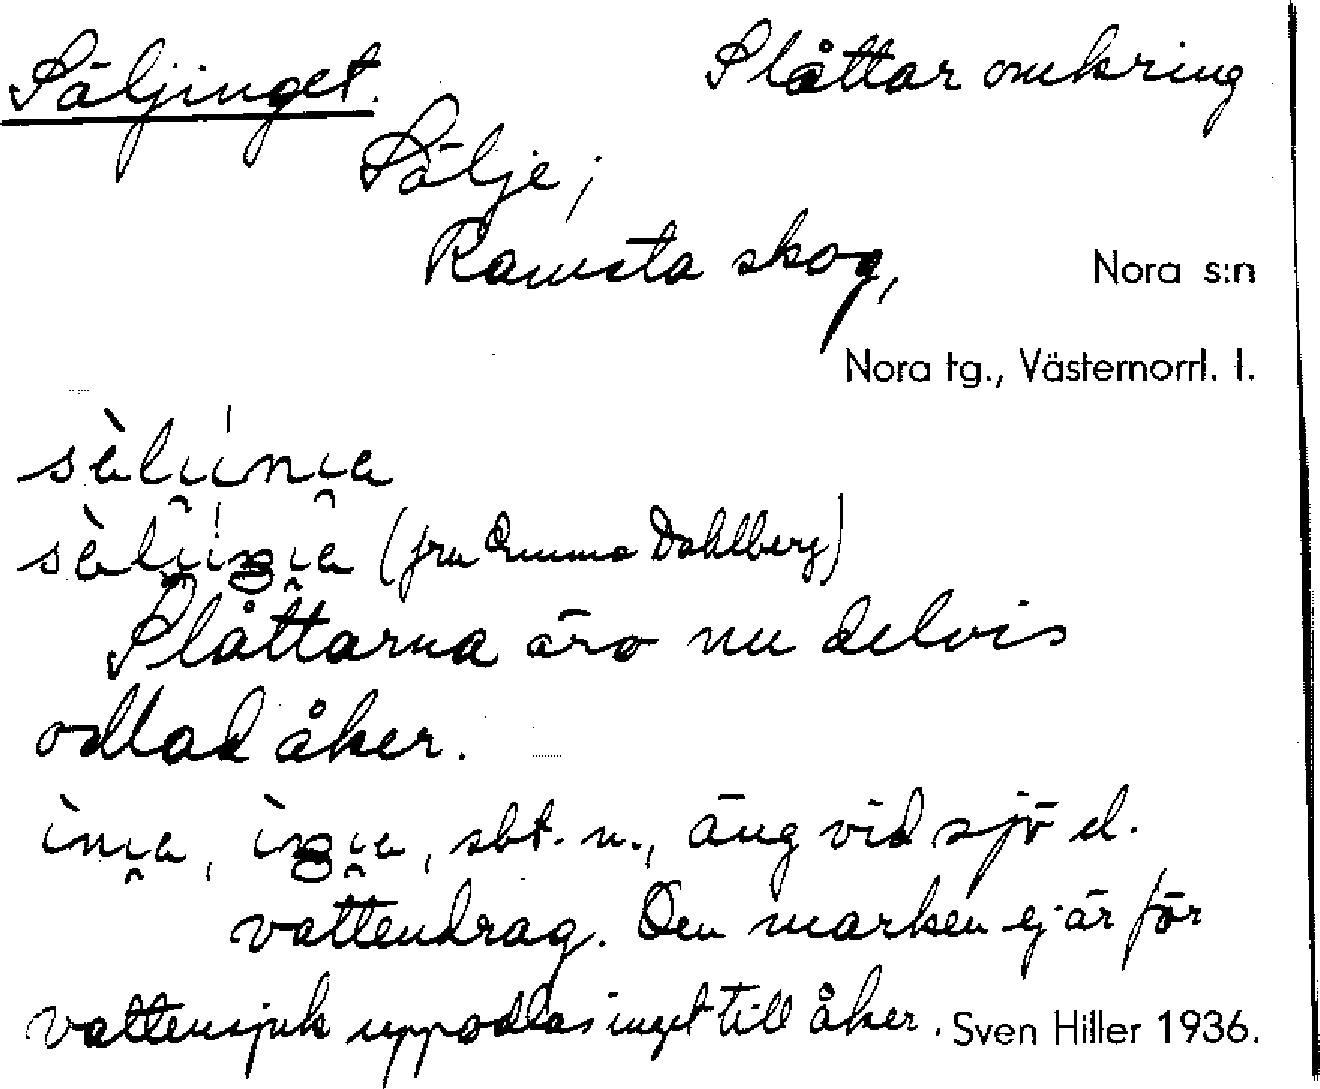 Säljinget. Slåttar omkring
Sälje;
Ramsta skog, Nora s:n
Nora tg., Västernorrl. l.
(fru Emma Dahlberg)
Slåttarna äro nu delvis
odlad åker.
sbt. n., äng vid sjö el.
vattendrag. Om marken ej är för
vattensjuk uppodlas inget till åker. Sven Hiller 1936.